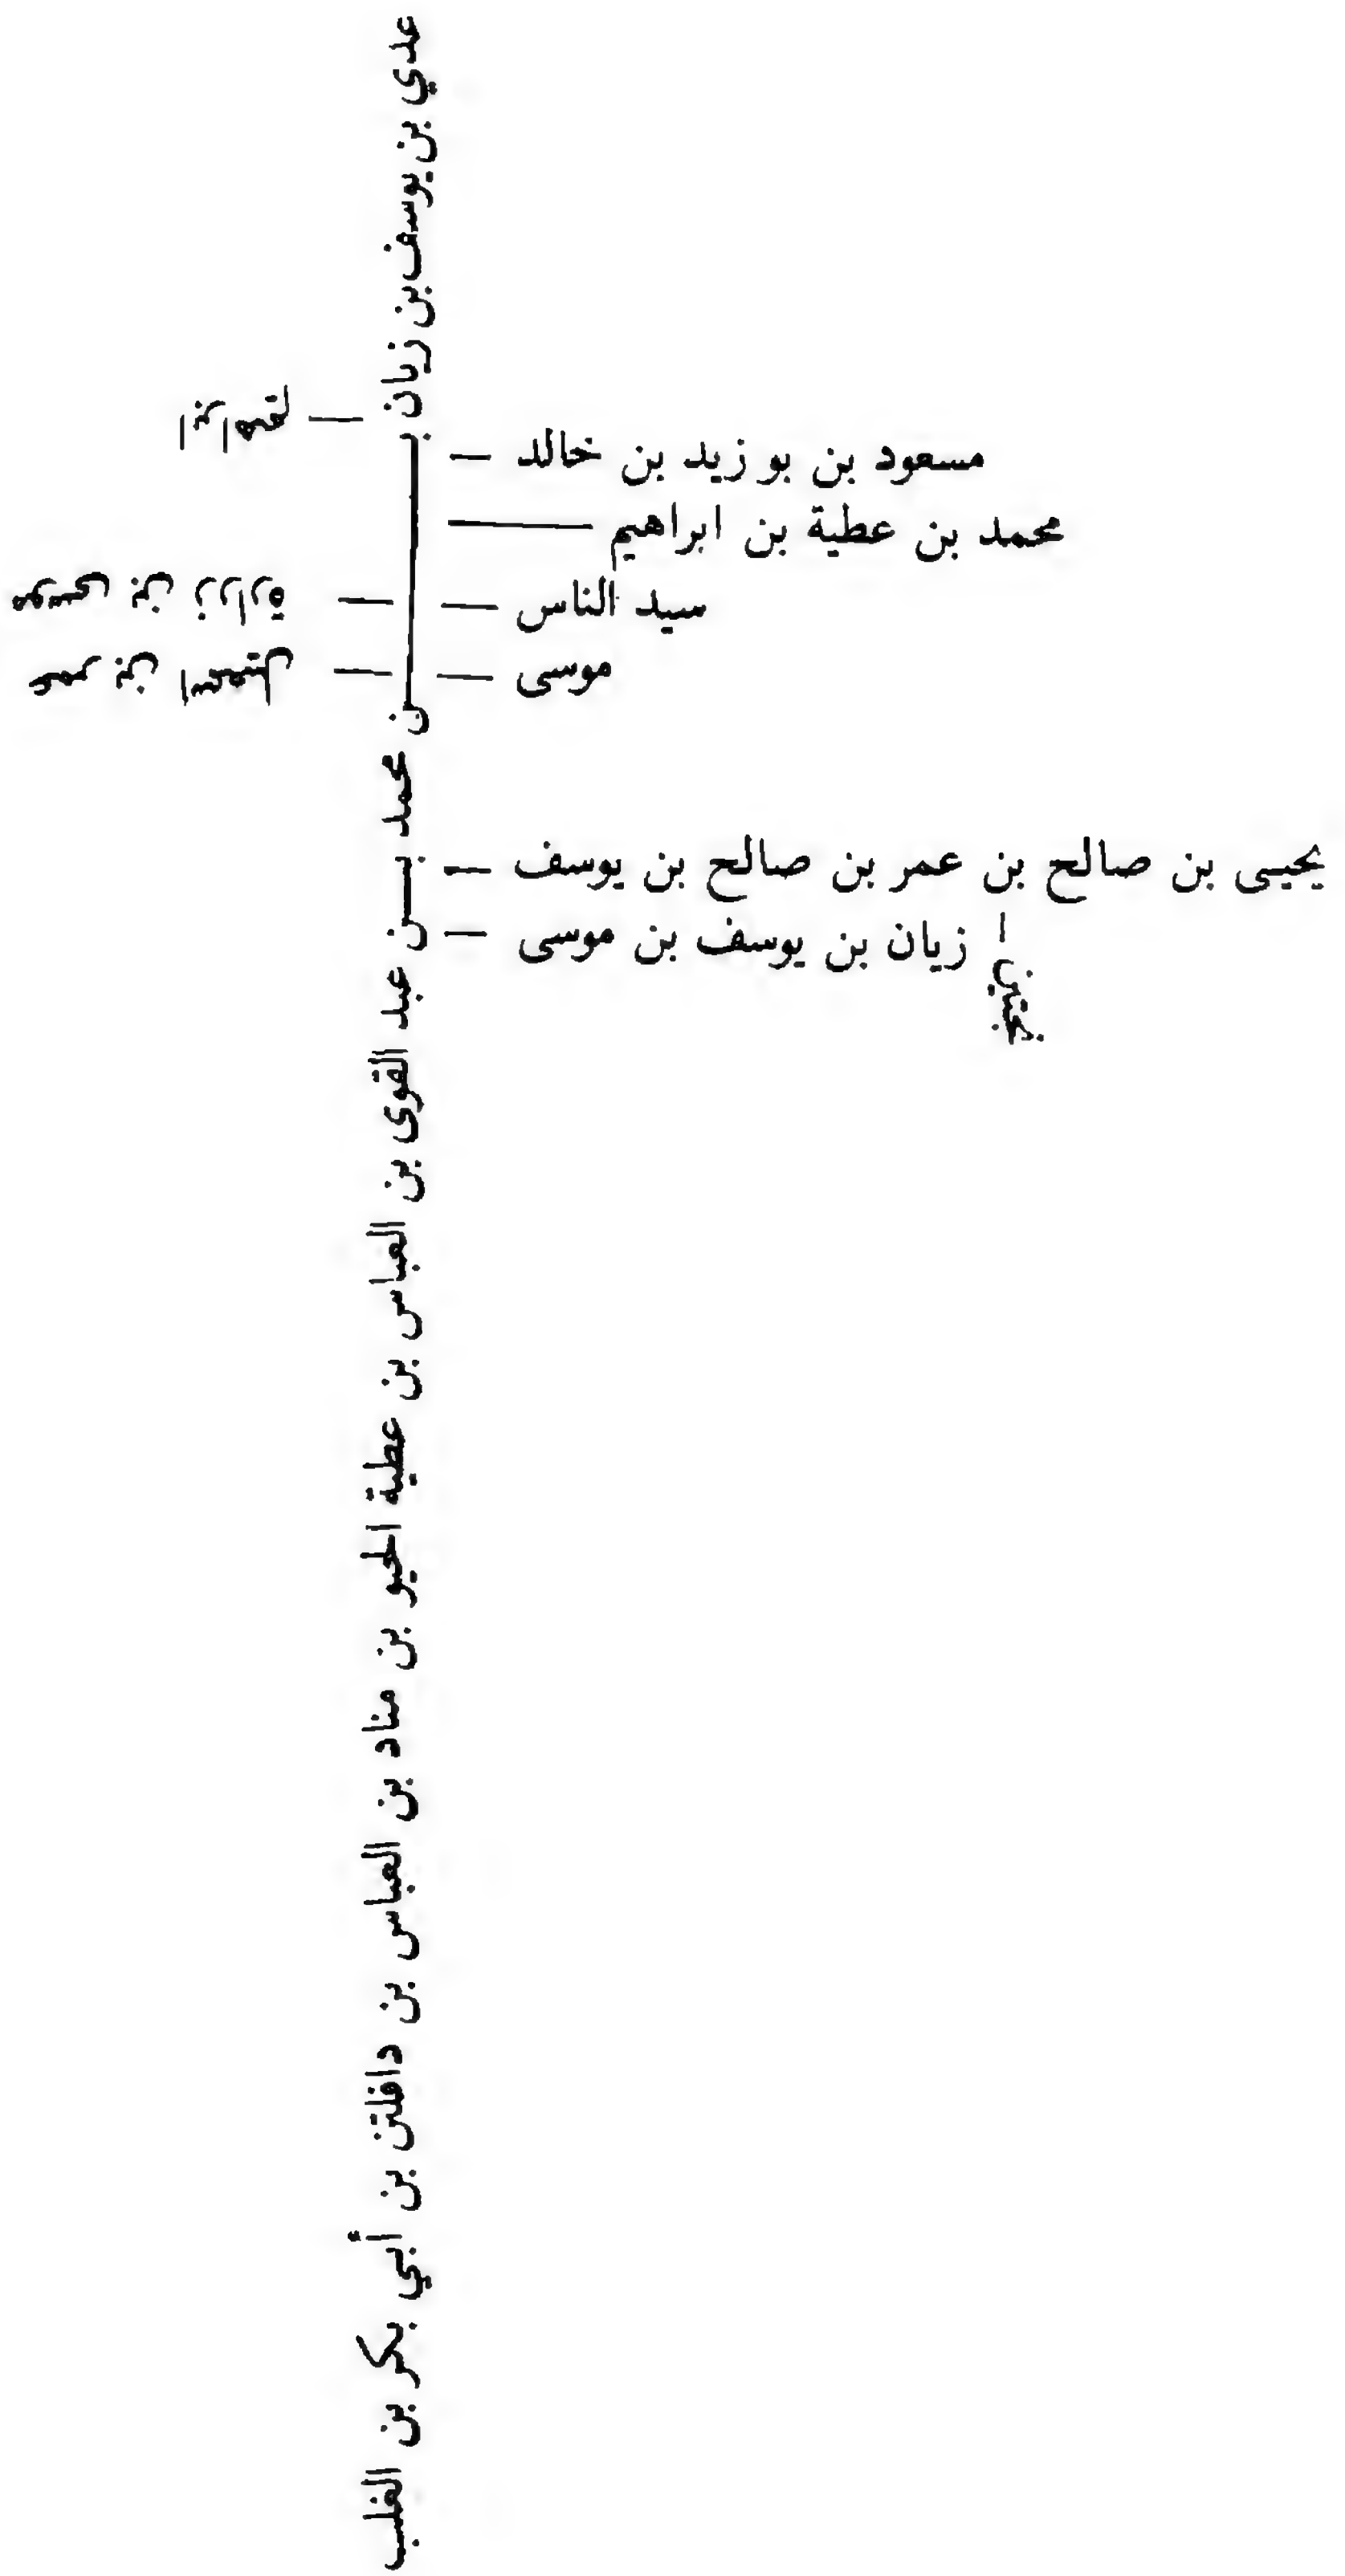 عدي بن يوسف بن زيان بن محمد بن عبد القوى بن العباس بن عطية الحيو بن مناد بن العباس بن دافلتن بن أبي بكر بن الغلب
مسعود بن بو زيد بن خالد
محمد بن عطية بن ابراهيم
سيد الناس
موسى
موسى بن زرارة
عمر بن اسمعيل
يحيى بن صالح بن عمر بن صالح بن يوسف
زيان بن يوسف بن موسى